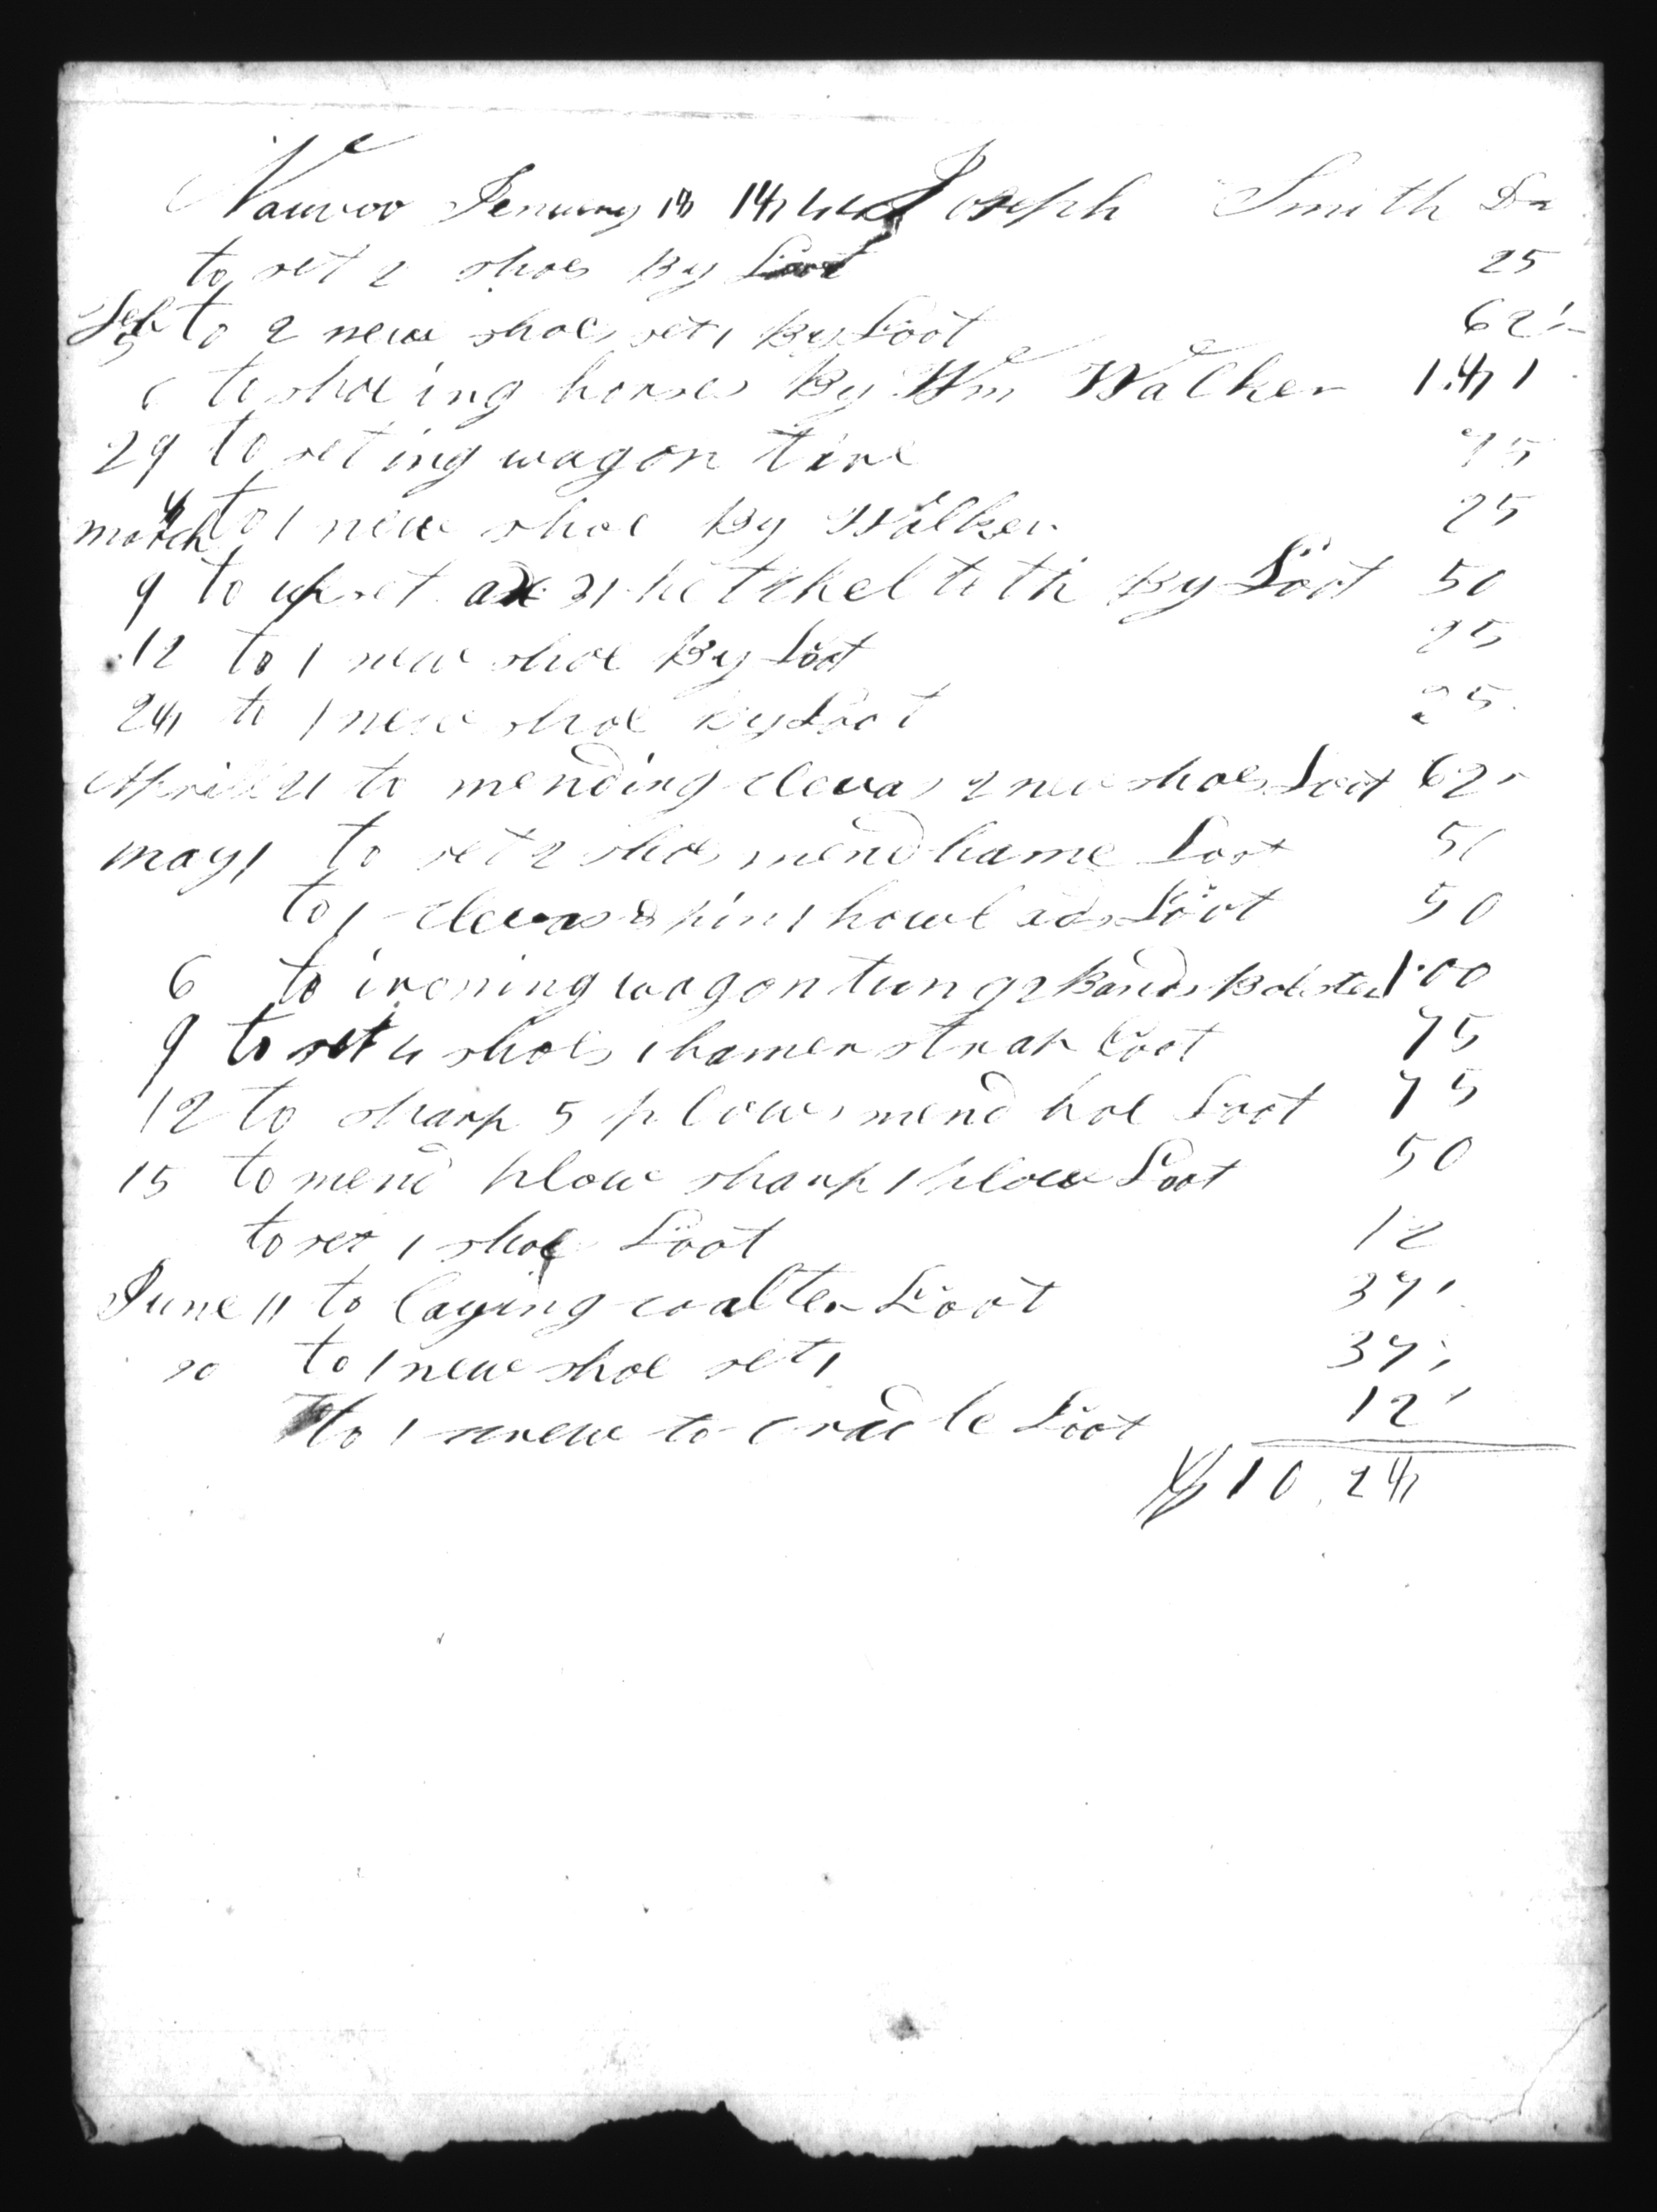 Nauvoo Jenuary Joseph Smith Dr
to set 2 shoes By Loot 25
Feb 5 to 2 new shoes set 1 By Loot 62 1/2
6 to shoeing horses By Wm Walker 1.41
29 to seting wagon tire 75
march 4 to 1 new shoe By Walker 25
9 to upset axe 31 hetchel teth By Loot 50
12 to 1 new shoe By Loot 25
24 to 1 new shoe By Loot 25
April 21 to mending clevas 2 new shoes Loot 62
may 1 to set 2 shoes mend hame Loot 50
to 1 clevas & pin 1 Loot 50
6 to ironing wagon tung 2 Bands Bolster 1.00
9 to set 4 shoes 1 hamer strap Loot 75
12 to sharp 5 plows mend hoe Loot 75
15 to mend plow sharp 1 plow Loot 50
to set 1 shoe Loot 12
June 11 to laying coalter Loot 37
20 to 1 new shoe set 1 37
to 1 screw to cradle Loot 12
$10.24